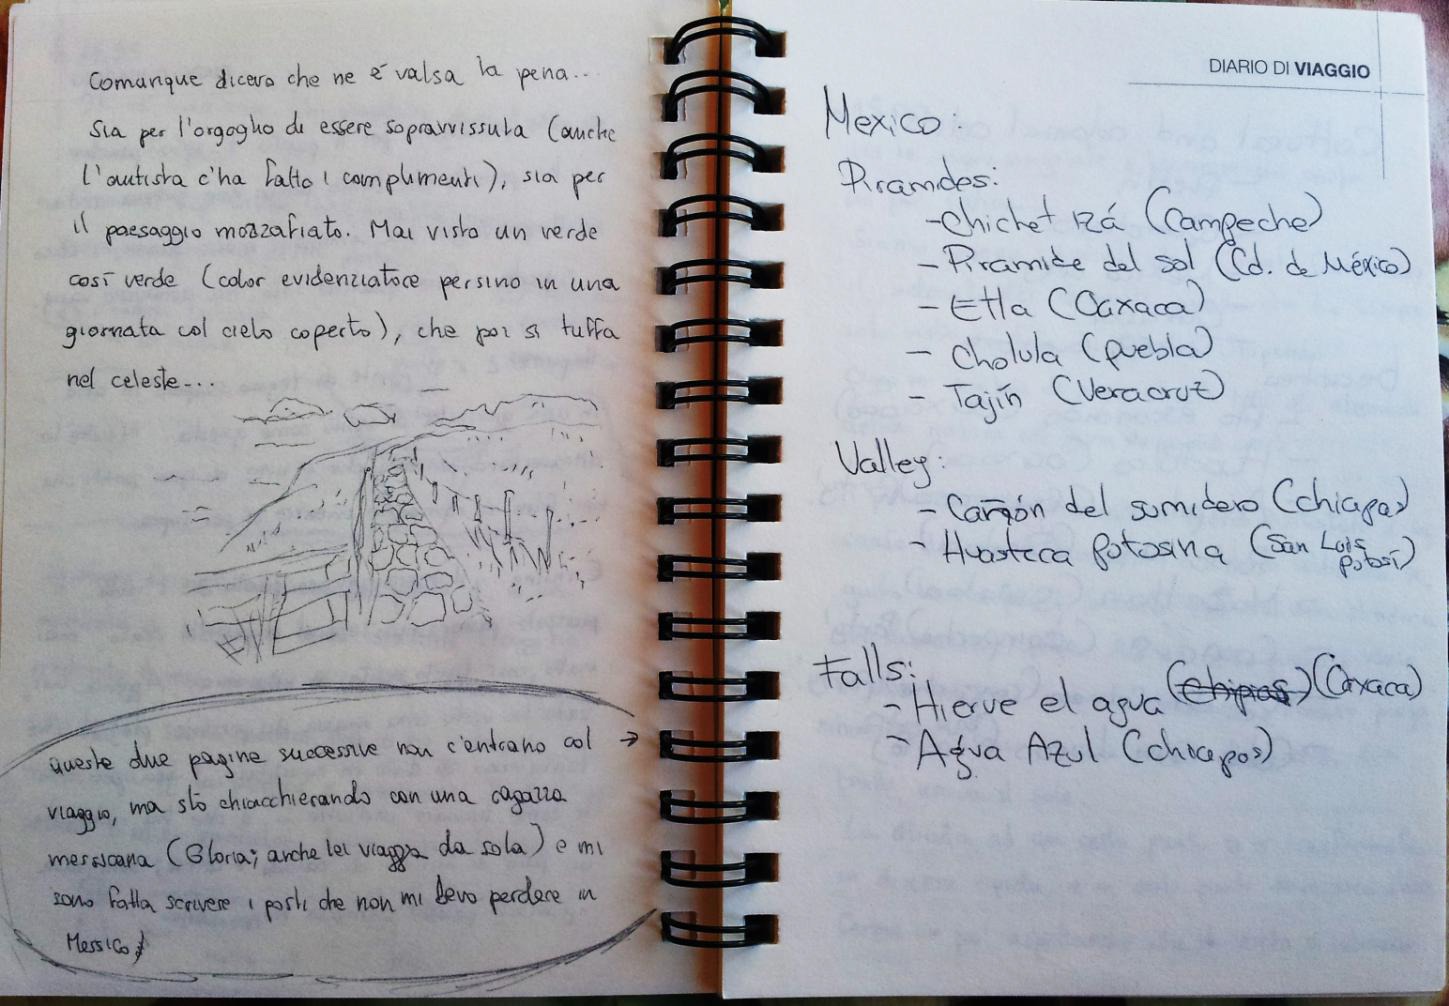 Comunque dicevo che ne è valsa la pena...
Sia per l'orgoglio di essere sopravvissuta (anche
l'autista c'ha fatto i complimenti), sia per
il paesaggio mozzafiato. Mai visto un verde
così verde (color evidenziatore persino in una
giornata col cielo coperto), che poi si tuffa
nel celeste...
Queste due pagine successive non c'entrano col →
viaggio, ma sto chiacchierando con una ragazza
messicana (Gloria; anche lei viaggia da sola) e mi
sono fatta scrivere i posti che non mi devo perdere in
Messico
DIARIO DI VIAGGIO
Mexico:
Piramides:
- Chichet Izá (Campeche)
- Piramide del sol (Cd. de México)
- Etla (Oaxaca)
- Cholula (puebla)
- Tajín (Veracruz)
Valley:
- Cañón del sumidero (chiapas)
- Huasteca potosina (San Luis
potosí)
Falls:
- Hierve el agua (chipias) (Oaxaca)
- Agua Azul (chiapas)